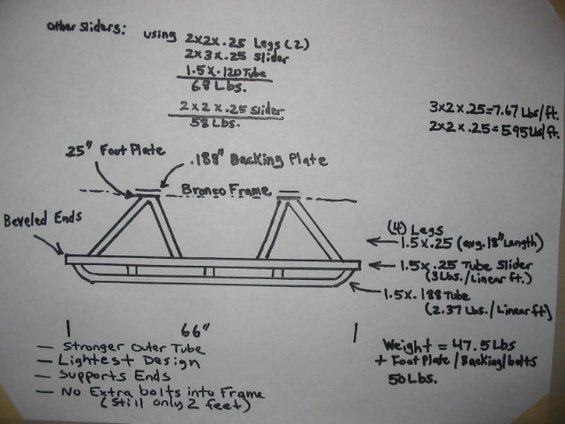 other Sliders: using 2x2x.25 Legs (2)
2x3x.25 Slider
1.5x.120 Tube
68 Lbs.
2x2x.25 Slider
58 Lbs.
3x2x.25=7.67 Lbs/ft.
2x2x.25=5.95 Lbs/ft.
.25" Foot Plate
.188" Backing Plate
Bronco Frame
Beveled Ends
(4) Legs
1.5x.25 (avg. 18" Length)
1.5x.25 Tube Slider
(3 Lbs./Linear ft.)
1.5x.188 Tube
(2.37 Lbs./Linear ft)
66"
— Stronger Outer Tube
— Lightest Design
— Supports Ends
— No Extra bolts into Frame
(Still only 2 feet)
Weight = 47.5 Lbs
+ Foot Plate/Backing/bolts
50 Lbs.